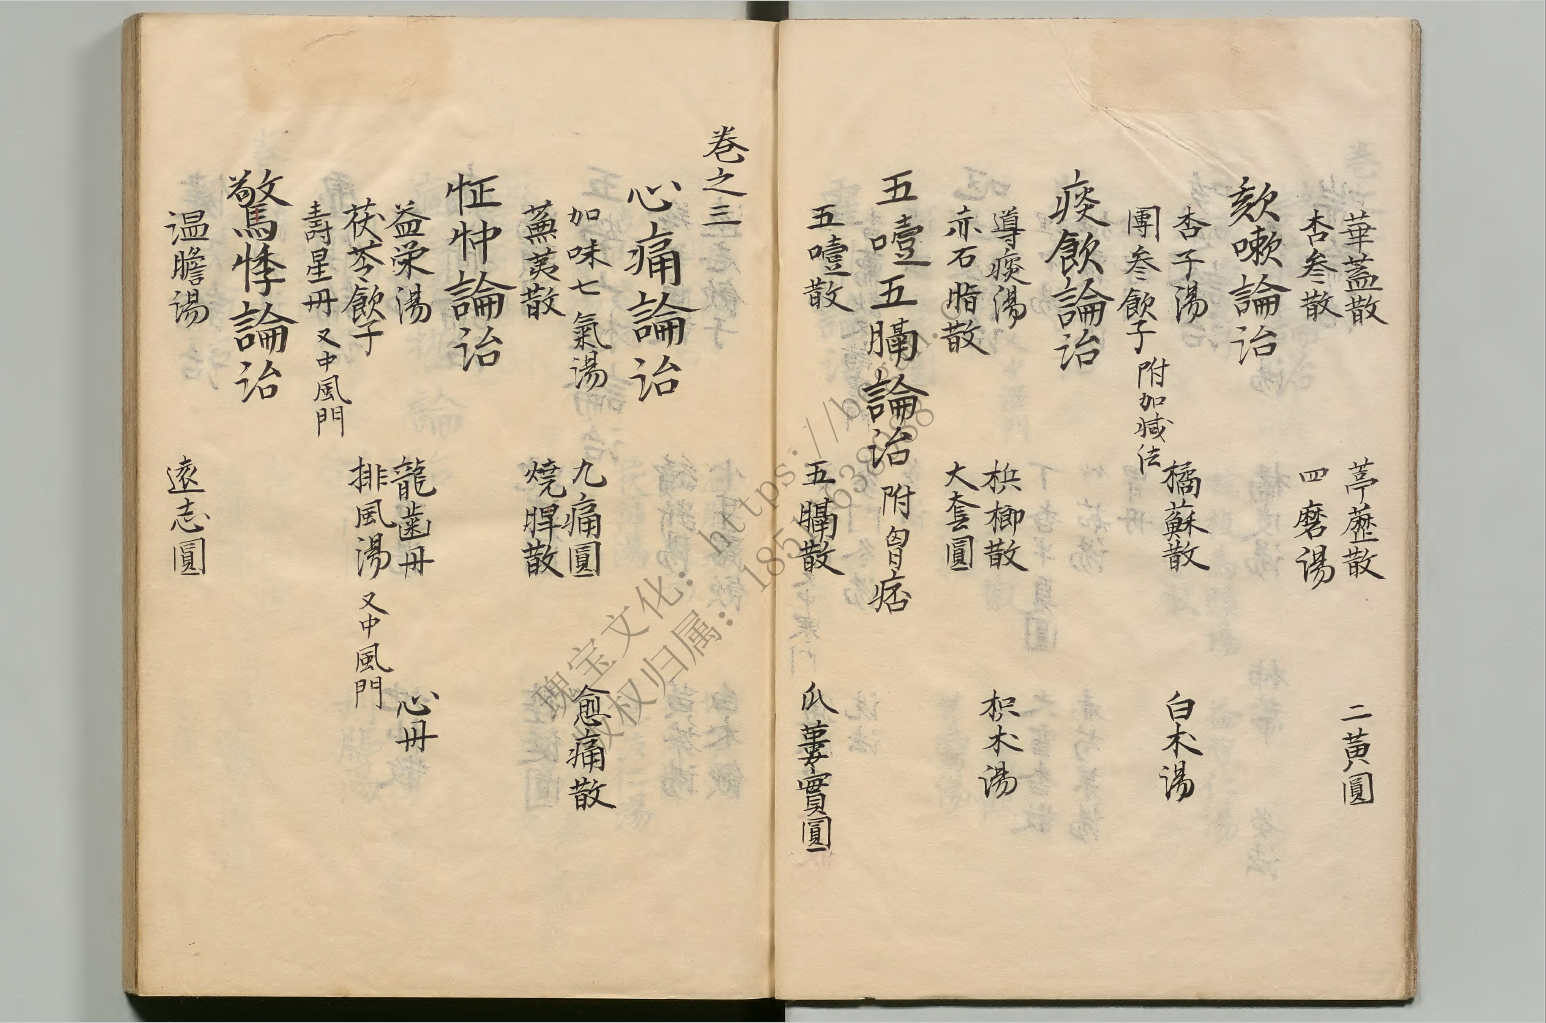 華蓋散　葶藶散　二黃圓
杏參散　四磨湯
欬嗽論治
杏子湯　橘蘇散　白朮湯
團參飲子 附加減法
痰飲論治
導痰湯　檳榔散　枳朮湯
赤石脂散　大套圓
五噎五膈論治 附胷痞
五噎散　五膈散　瓜蔞實圓
卷之三
心痛論治
加味七氣湯　九痛圓　愈痛散
蕪荑散　燒脾散
怔忡論治
益榮湯　龍齒丹　心丹
茯苓飲子　排風湯 又中風門
壽星丹 又中風門
驚悸論治
温膽湯　遠志圓
瑰宝文化：https://b
版权归属：18518638988